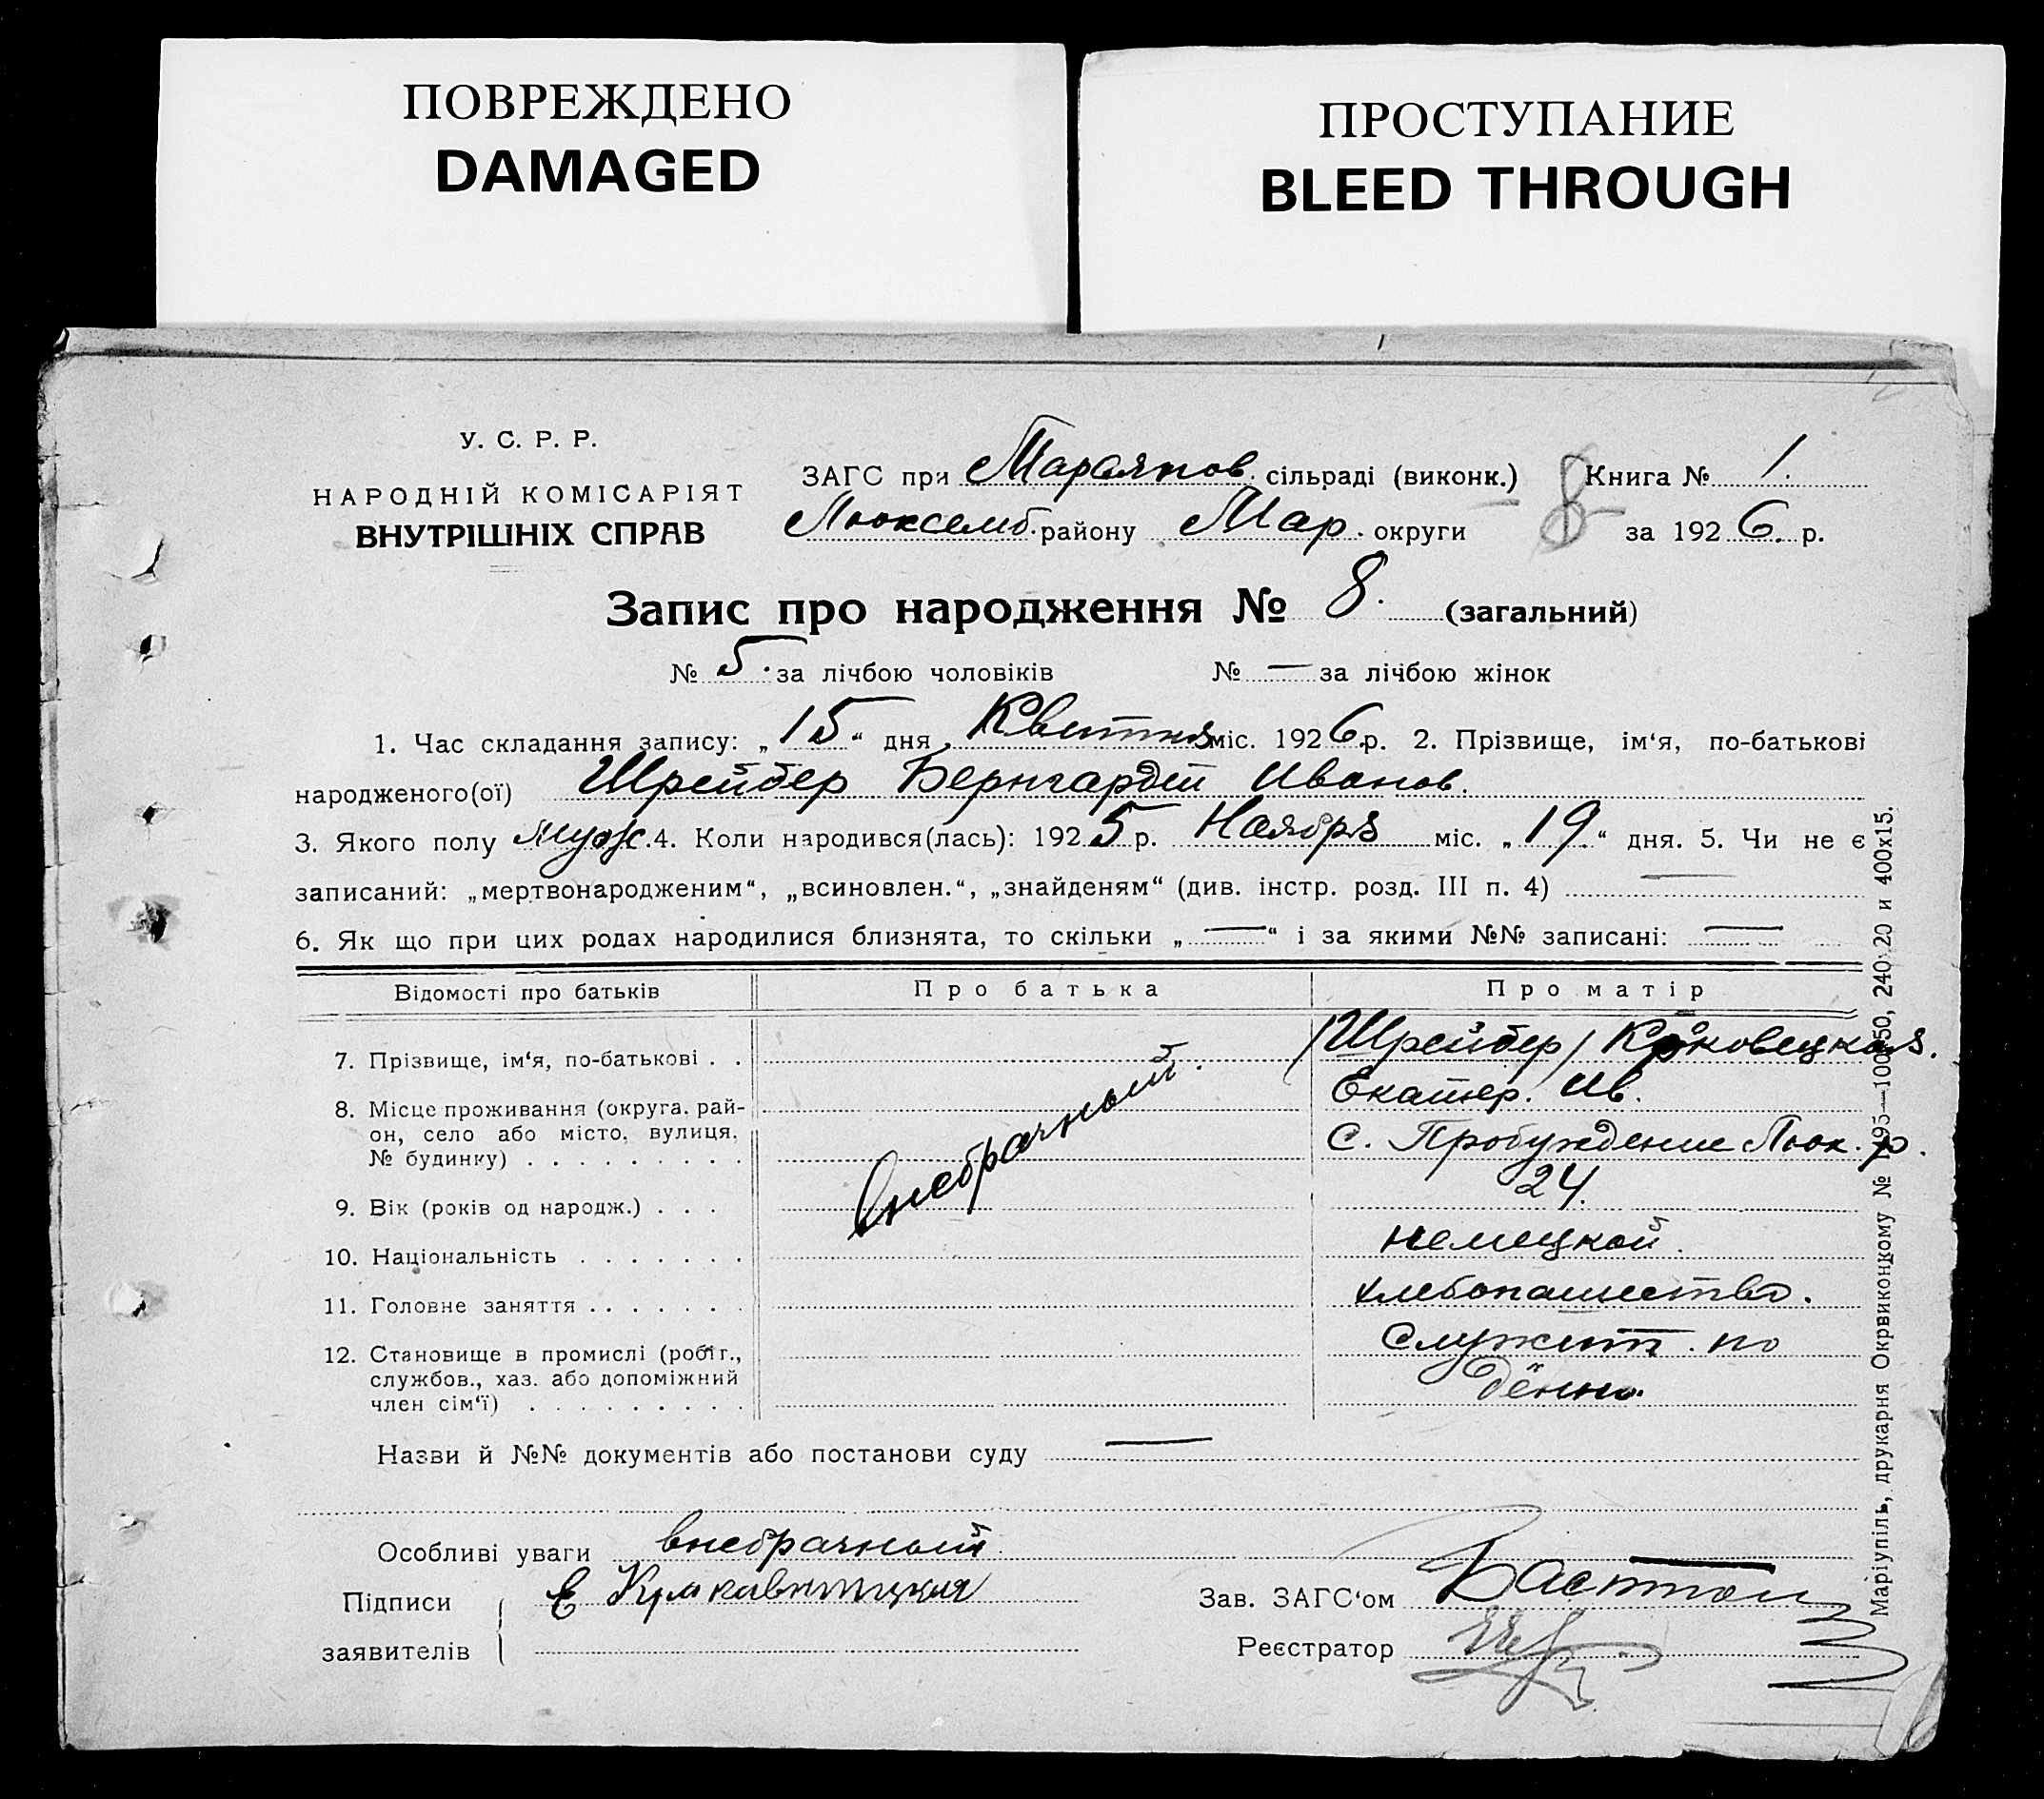 ПОВРЕЖДЕНО
DAMAGED
ПРОСТУПАНИЕ
BLEED THROUGH
У. С. Р. Р.
НАРОДНІЙ КОМІСАРІЯТ
ВНУТРІШНІХ СПРАВ
ЗАГС при Мараянов. сільраді (виконк.)
Люксемб. району Мар. округи
Книга № 1.
за 1926. р.
8
Запис про народження № 8. (загальний)
№ 5. за лічбою чоловіків № — за лічбою жінок
1. Час складання запису: „15“ дня Квитня міс. 1926 р. 2. Прізвище, ім‘я, по-батькові
народженого(ої) Шрейбер Бернгардт Иванов.
3. Якого полу Муж. 4. Коли народився(лась): 1925 р. Ноября міс. „19.“ дня. 5. Чи не є
записаний: „мертвонародженим“, „всиновлен.“, „знайденям“ (див. інстр. розд. III п. 4) —
6. Як що при цих родах народилися близнята, то скільки „—“ і за якими №№ записані: —
Відомості про батьків Про батька Про матір
7. Прізвище, ім‘я, по-батькові . . /Шрейбер/
Екатер. Ив.
8. Місце проживання (округа, рай-
он, село або місто, вулиця,
№ будинку) . . . . . . . . . с. Пробуждение Люк. р.
9. Вік (років од народж.) . . . 24.
внебрачный.
10. Національність . . . . . . . немецкой.
11. Головне заняття . . . . . . . хлебопашество.
12. Становище в промислі (робіт., служит. по
службов., хаз. або допоміжний дённо.
член сім‘ї) . . . . . . . . .
Назви й №№ документів або постанови суду —
Особливі уваги внебрачный
Підписи Е
заявителів
Зав. ЗАГС‘ом
Реєстратор
Маріупіль, друкарня Окрвиконкому № 1795—100×50, 240×20 и 400х15.